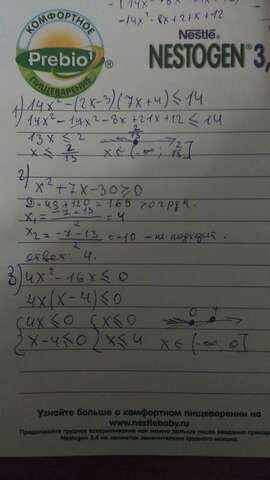 -14x² - 8x + 21x + 12
КОМФОРТНОЕ
Prebio¹
ПИЩЕВАРЕНИЕ
Nestlē
NESTOGEN® 3
1) 14x² - (2x-3)(7x+4) ≤ 14
14x² - 14x² - 8x + 21x + 12 ≤ 14
13x ≤ 2
x ≤ 2/13 x ∈ (-∞; 2/13]
2)
x² + 7x - 30 > 0
D = 49 + 120 = 169 > 0
x₁ = (-7+13)/2 = 4
x₂ = (-7-13)/2 = -10 - не подходит.
ответ: 4.
3) 4x² - 16x ≤ 0
4x(x-4) ≤ 0
{4x ≤ 0 {x ≤ 0 0 4
{x-4 ≤ 0 {x ≤ 4 x ∈ (-∞; 0]
Узнайте больше о комфортном пищеварении на
www.nestlebaby.ru